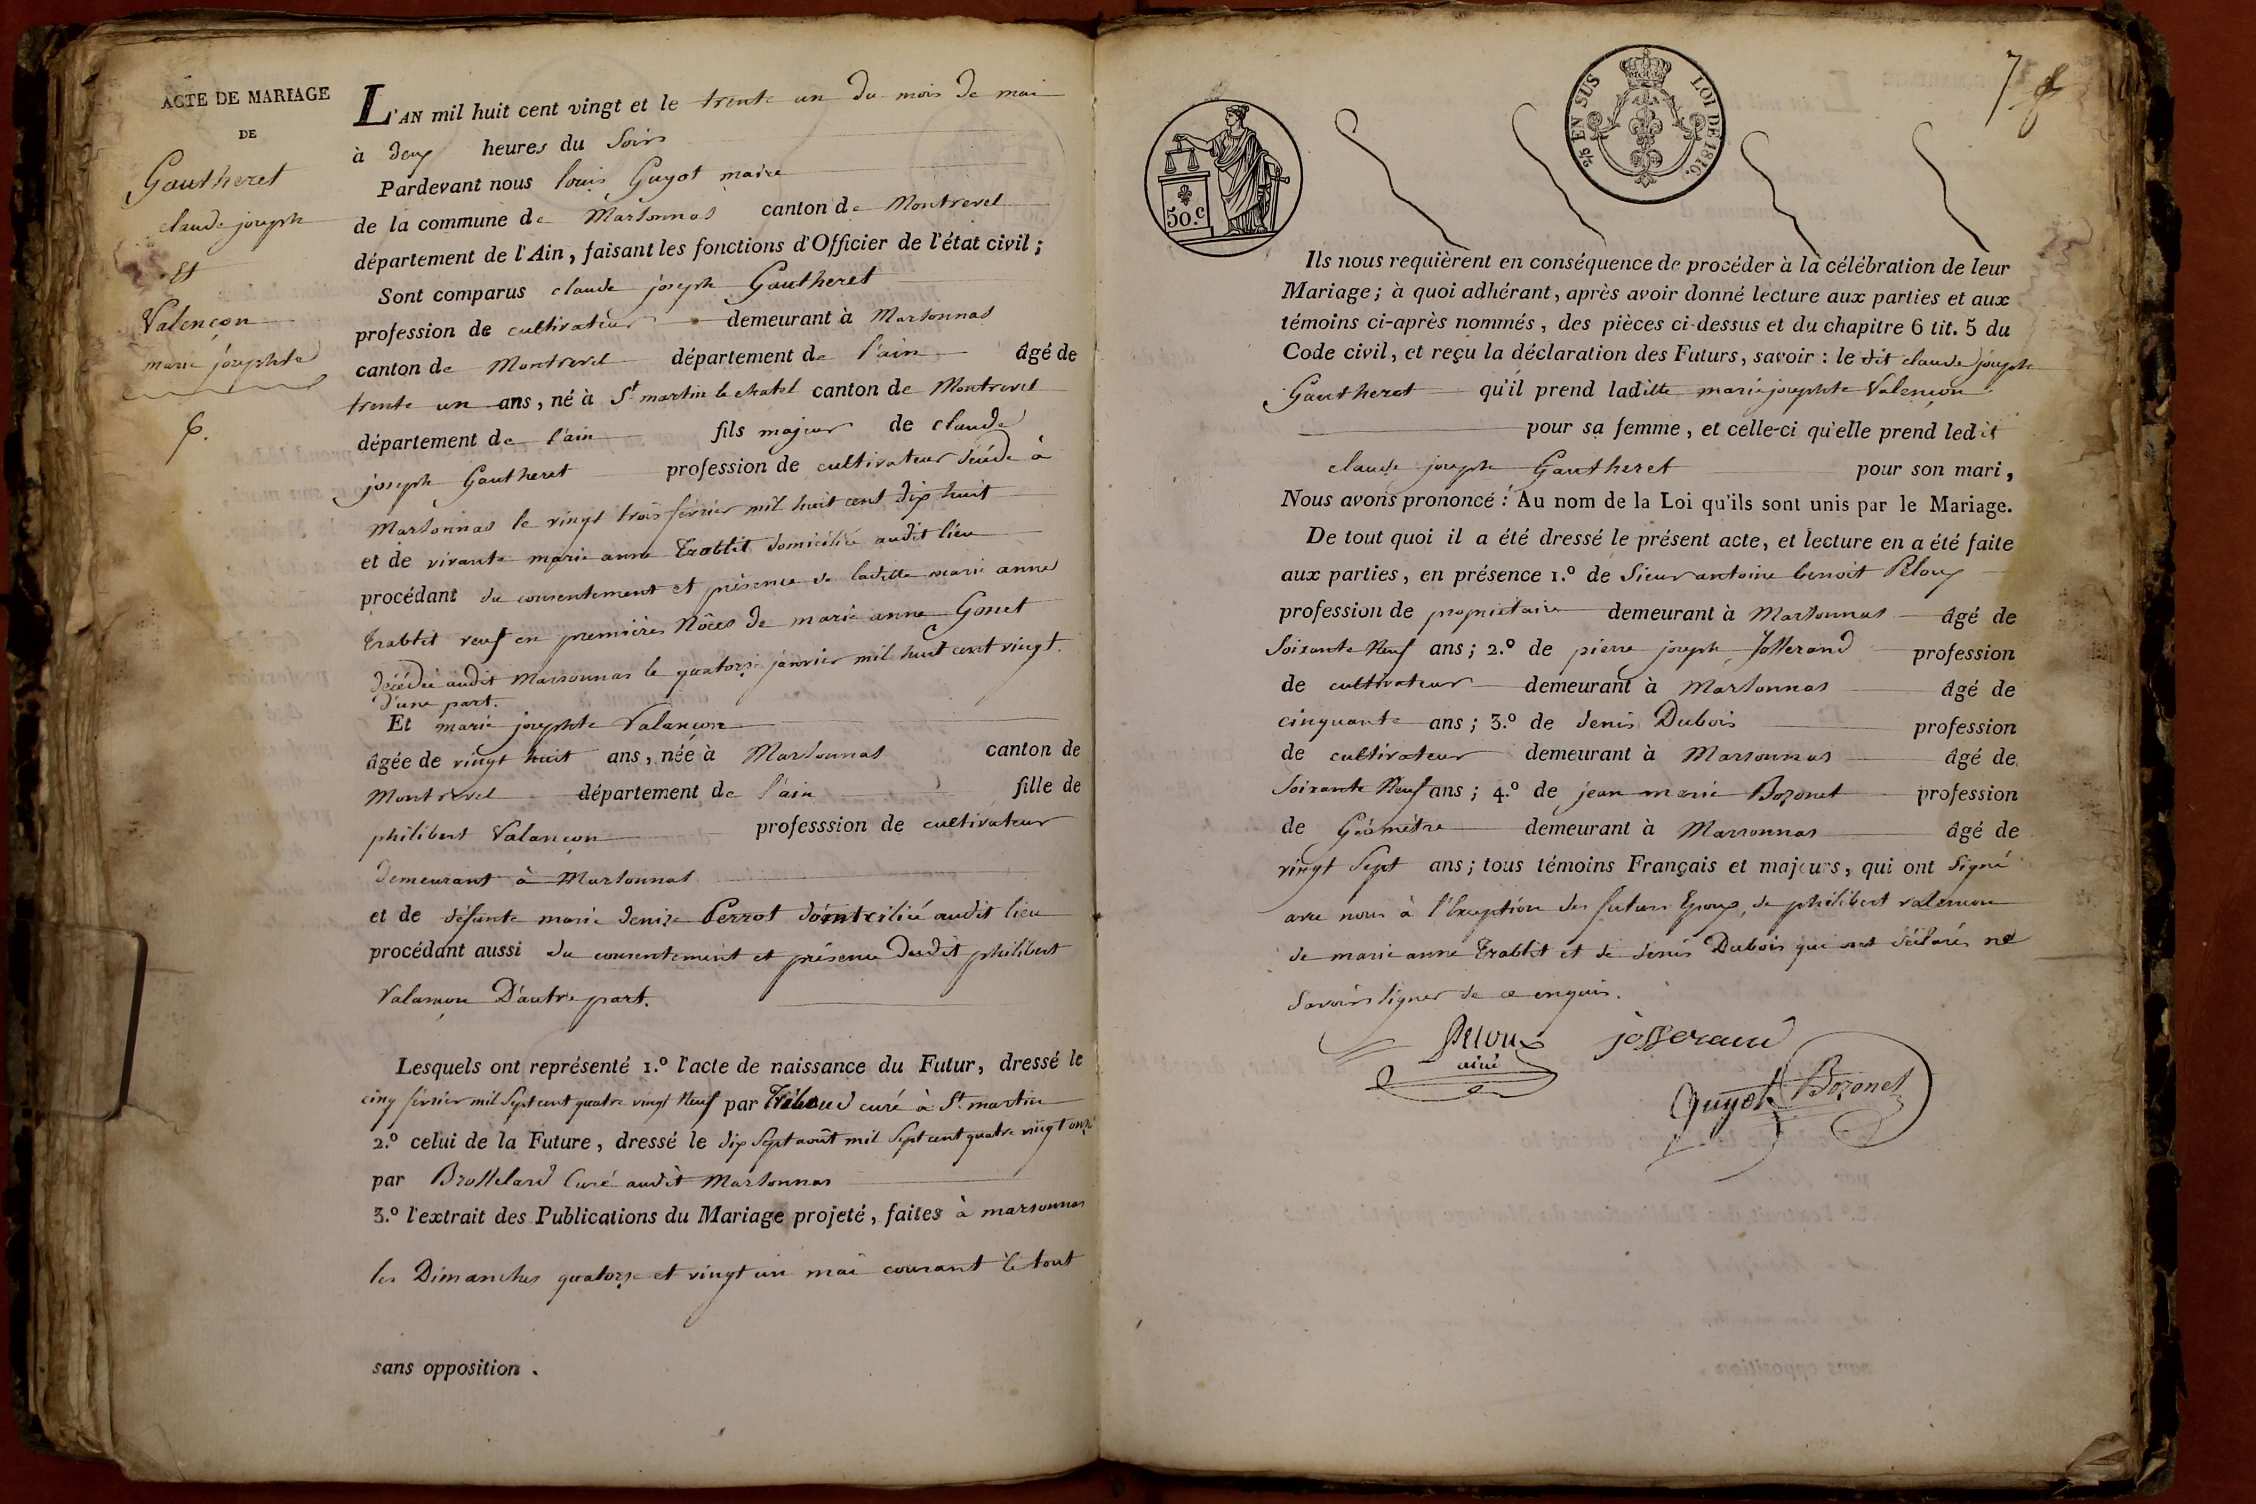 ACTE DE MARIAGE
DE
Gautheret
claude joseph
Et
Valençon
marie josephte
6.
L'AN mil huit cent vingt et le trente un du mois de mai
à deux heures du Soir
Pardevant nous louis Guyot maire
de la commune de Marsonnas canton de Montrevel
département de l'Ain, faisant les fonctions d'Officier de l'état civil;
Sont comparus claude joseph Gautheret
profession de cultivateur demeurant à Marsonnas
canton de Montrevel département de l'ain âgé de
trente un ans, né à St martin le chatel canton de Montrevel
département de l'ain fils majeur de claude
joseph Gautheret profession de cultivateur décédé à
Marsonnas le vingt trois février mil huit cent dix huit
et de vivante marie anne Trablit domiciliée audit lieu
procédant du consentement et présence de ladite marie anne
Trablit veuf en premières Nôces de marie anne Gonet
décédée audit Marsonnas le quatorze janvier mil huit cent vingt.
d'une part.
Et marie josephte Valançon
âgée de vingt huit ans, née à Marsonnas canton de
Montrevel département de l'ain fille de
philibert Valançon professsion de cultivateur
demeurant à Marsonnas
et de défunte marie denise Perrot domiciliée audit lieu
procédant aussi du consentement et présence dudit philibert
Valançon D'autre part.
Lesquels ont représenté 1.º l'acte de naissance du Futur, dressé le
cinq février mil Sept cent quatre vingt Neuf par curé à St martin
2.º celui de la Future, dressé le dix Sept août mil Sept cent quatre vingt onze
par Brosselard Curé audit Marsonnas
3.º l'extrait des Publications du Mariage projeté, faites à marsonnas
les Dimanches quatorze et vingt un mai courant le tout
sans opposition.
7
50.c
2/5 EN SUS LOI DE 1816.
Ils nous requièrent en conséquence de procéder à la célébration de leur
Mariage; à quoi adhérant, après avoir donné lecture aux parties et aux
témoins ci-après nommés, des pièces ci-dessus et du chapitre 6 tit. 5 du
Code civil, et reçu la déclaration des Futurs, savoir: le dit claude joseph
Gautheret qu'il prend laditte marie josephte Valençon
pour sa femme, et celle-ci qu'elle prend ledit
claude joseph Gautheret pour son mari,
Nous avons prononcé: Au nom de la Loi qu'ils sont unis par le Mariage.
De tout quoi il a été dressé le présent acte, et lecture en a été faite
aux parties, en présence 1.º de Sieur antoine benoit Peloux
profession de propriétaire demeurant à Marsonnas âgé de
Soixante Neuf ans; 2.º de pierre joseph Josserand profession
de cultivateur demeurant à Marsonnas âgé de
cinquante ans; 3.º de denis Dubois profession
de cultivateur demeurant à Marsonnas âgé de
Soixante Neuf ans; 4.º de jean marie Bozonet profession
de Géomètre demeurant à Marsonnas âgé de
vingt Sept ans; tous témoins Français et majeurs, qui ont Signé
avec nous à l'Exception des futurs Epoux, de philibert valençon
de marie anne Trablit et de denis Dubois qui ont déclarés ne
Savoir Signer de ce enquis.
Peloux
ainé
josserand
Guyot Bozonet